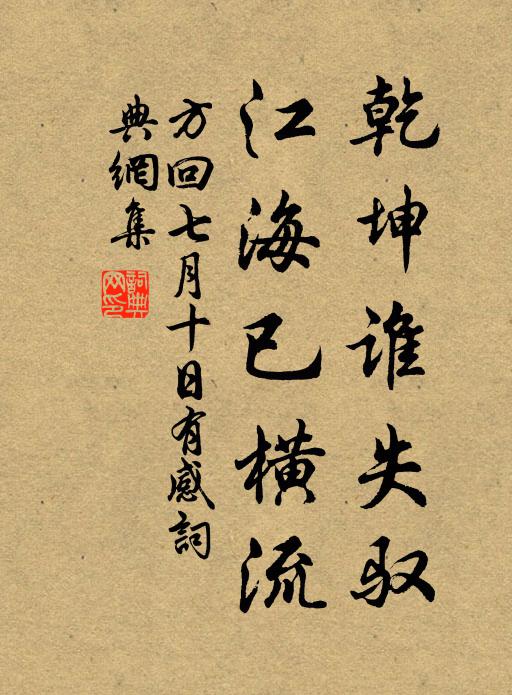 乾坤谁失驭
江海已横流
方回七月十日有感詞
典網集
詞典网印